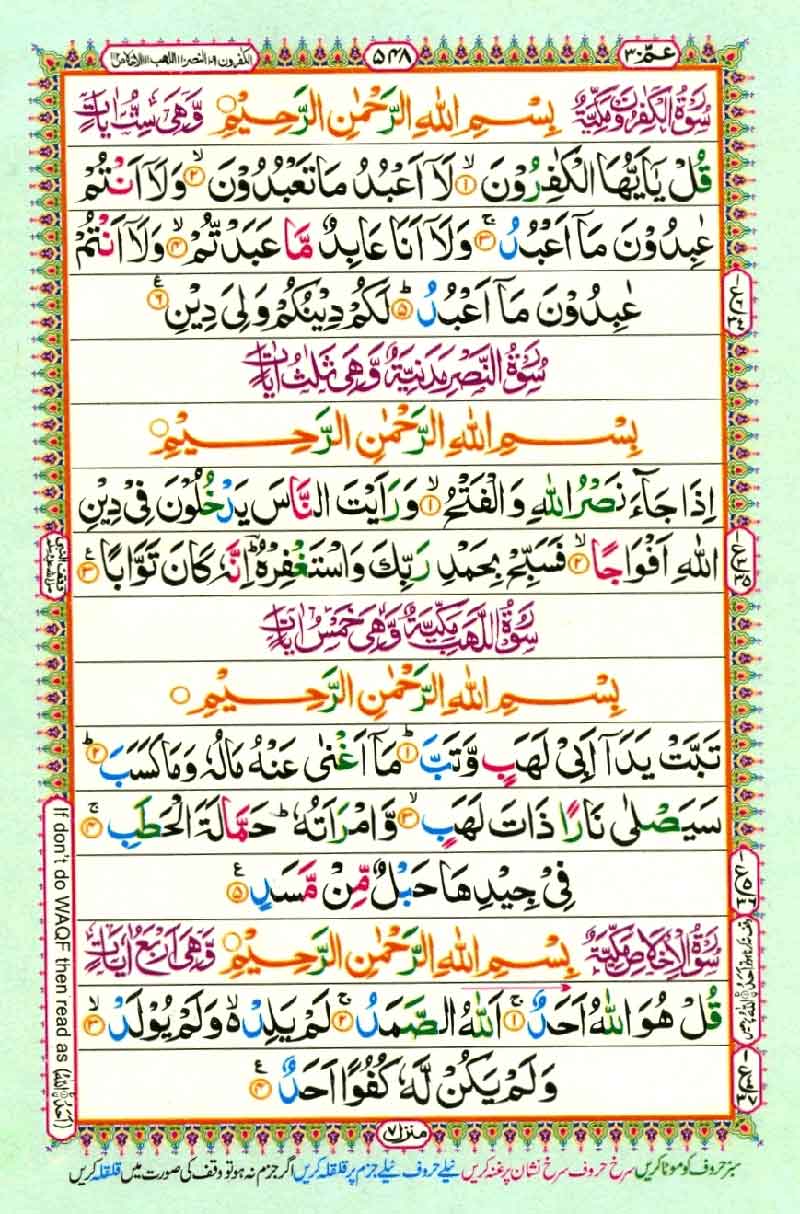 عمّ ٣٠
٥٤٨
الكفرون ١٠٩ النصر ١١٠ اللهب ١١١ الاخلاص ١١٢
سُوْرَةُ الْكٰفِرُوْنَ مَكِّيَّةٌ بِسْمِ اللّٰهِ الرَّحْمٰنِ الرَّحِيْمِ ○ وَّهِىَ سِتُّ اٰيَاتٍ
قُلْ يٰۤاَيُّهَا الْكٰفِرُوْنَ ۙ‏﴿۱﴾ لَاۤ اَعْبُدُ مَا تَعْبُدُوْنَ ۙ‏﴿۲﴾ وَلَاۤ اَنْتُمْ
عٰبِدُوْنَ مَاۤ اَعْبُدُ ۚ‏﴿۳﴾ وَلَاۤ اَنَا عَابِدٌ مَّا عَبَدْتُّمْ ۙ‏﴿۴﴾ وَلَاۤ اَنْتُمْ
عٰبِدُوْنَ مَاۤ اَعْبُدُ ؕ‏﴿۵﴾ لَكُمْ دِيْنُكُمْ وَلِىَ دِيْنِ ‏﴿۶﴾ ع
سُوْرَةُ النَّصْرِ مَدَنِيَّةٌ وَّهِىَ ثَلٰثُ اٰيَاتٍ
بِسْمِ اللّٰهِ الرَّحْمٰنِ الرَّحِيْمِ ○
اِذَا جَآءَ نَصْرُ اللّٰهِ وَالْفَتْحُ ۙ‏﴿۱﴾ وَرَاَيْتَ النَّاسَ يَدْخُلُوْنَ فِىْ دِيْنِ
اللّٰهِ اَفْوَاجًا ۙ‏﴿۲﴾ فَسَبِّحْ بِحَمْدِ رَبِّكَ وَاسْتَغْفِرْهُ ؕ اِنَّهٗ كَانَ تَوَّابًا ‏﴿۳﴾ ع
سُوْرَةُ اللَّهَبِ مَكِّيَّةٌ وَّهِىَ خَمْسُ اٰيَاتٍ
بِسْمِ اللّٰهِ الرَّحْمٰنِ الرَّحِيْمِ ○
تَبَّتْ يَدَاۤ اَبِىْ لَهَبٍ وَّتَبَّ ؕ‏﴿۱﴾ مَاۤ اَغْنٰى عَنْهُ مَالُهٗ وَمَا كَسَبَ ؕ‏﴿۲﴾
سَيَصْلٰى نَارًا ذَاتَ لَهَبٍ ۙ‏﴿۳﴾ وَّامْرَاَتُهٗ ؕ حَمَّالَةَ الْحَطَبِ ۚ‏﴿۴﴾
فِىْ جِيْدِهَا حَبْلٌ مِّنْ مَّسَدٍ ‏﴿۵﴾ ع
سُوْرَةُ الْاِخْلَاصِ مَكِّيَّةٌ بِسْمِ اللّٰهِ الرَّحْمٰنِ الرَّحِيْمِ ○ وَّهِىَ اَرْبَعُ اٰيَاتٍ
قُلْ هُوَ اللّٰهُ اَحَدٌ ۚ‏﴿۱﴾ اَللّٰهُ الصَّمَدُ ۚ‏﴿۲﴾ لَمْ يَلِدْ ۙ وَلَمْ يُوْلَدْ ۙ‏﴿۳﴾
وَلَمْ يَكُنْ لَّهٗ كُفُوًا اَحَدٌ ‏﴿۴﴾ ع
If don't do WAQF then read as (اَحَدُنِ اللّٰهُ)
منزل ٧
سبز حروف کو موٹا کریں سرخ حروف سرخ نشان پر غنہ کریں نیلے حروف نیلے جزم پر قلقلہ کریں اگر جزم نہ ہو تو وقف کی صورت میں قلقلہ کریں